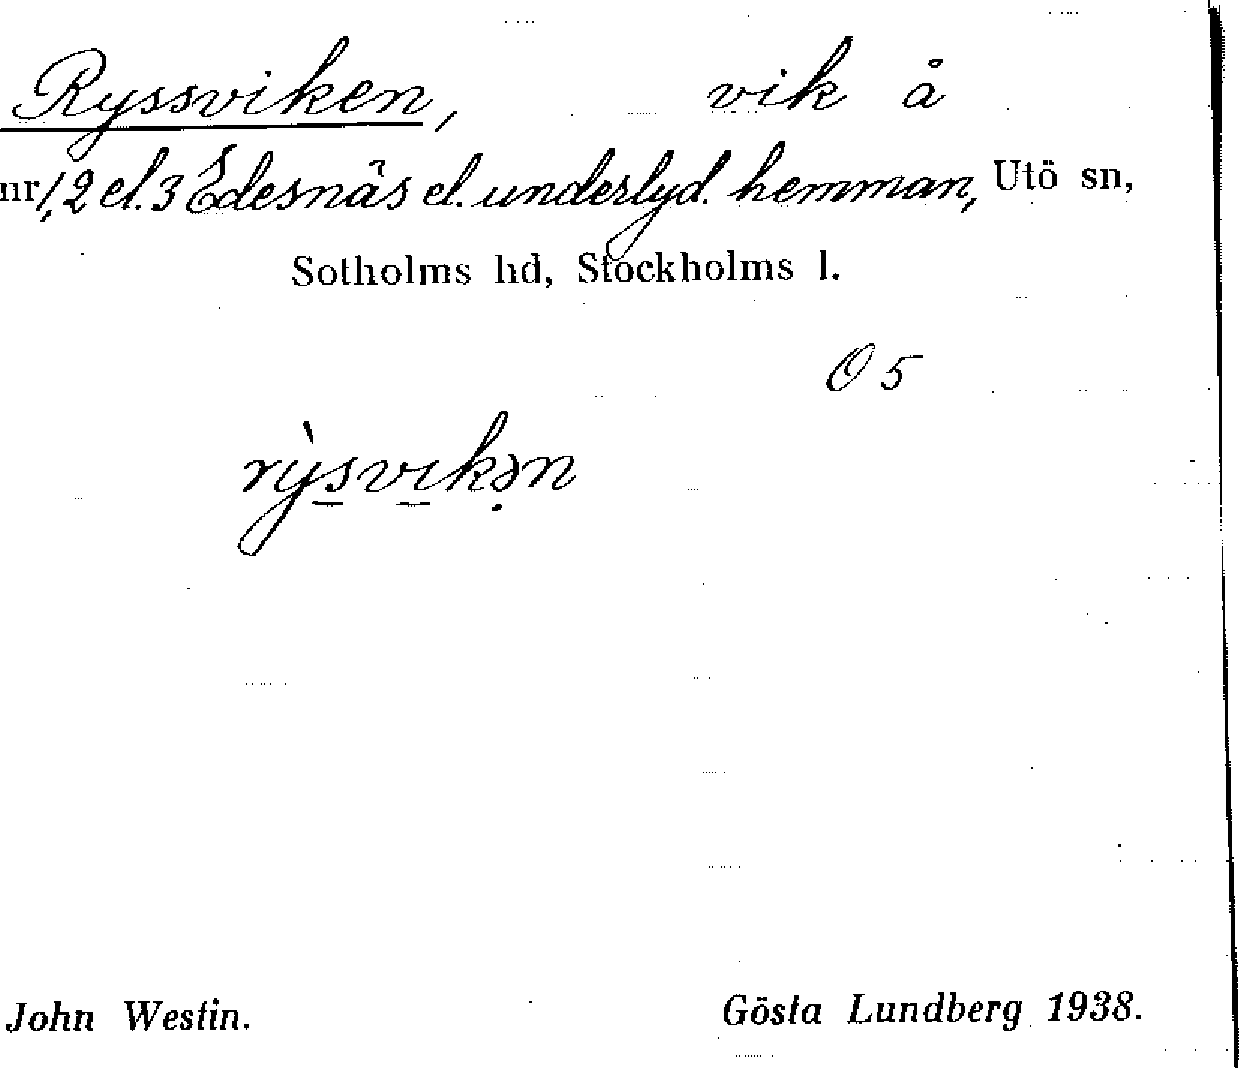 Ryssviken, vik å
nr 1, 2 el. 3 Edesnäs el. underlyd. hemman, Utö sn,
Sotholms hd, Stockholms l.
O 5
rỳsvikən
John Westin. Gösta Lundberg 1938.